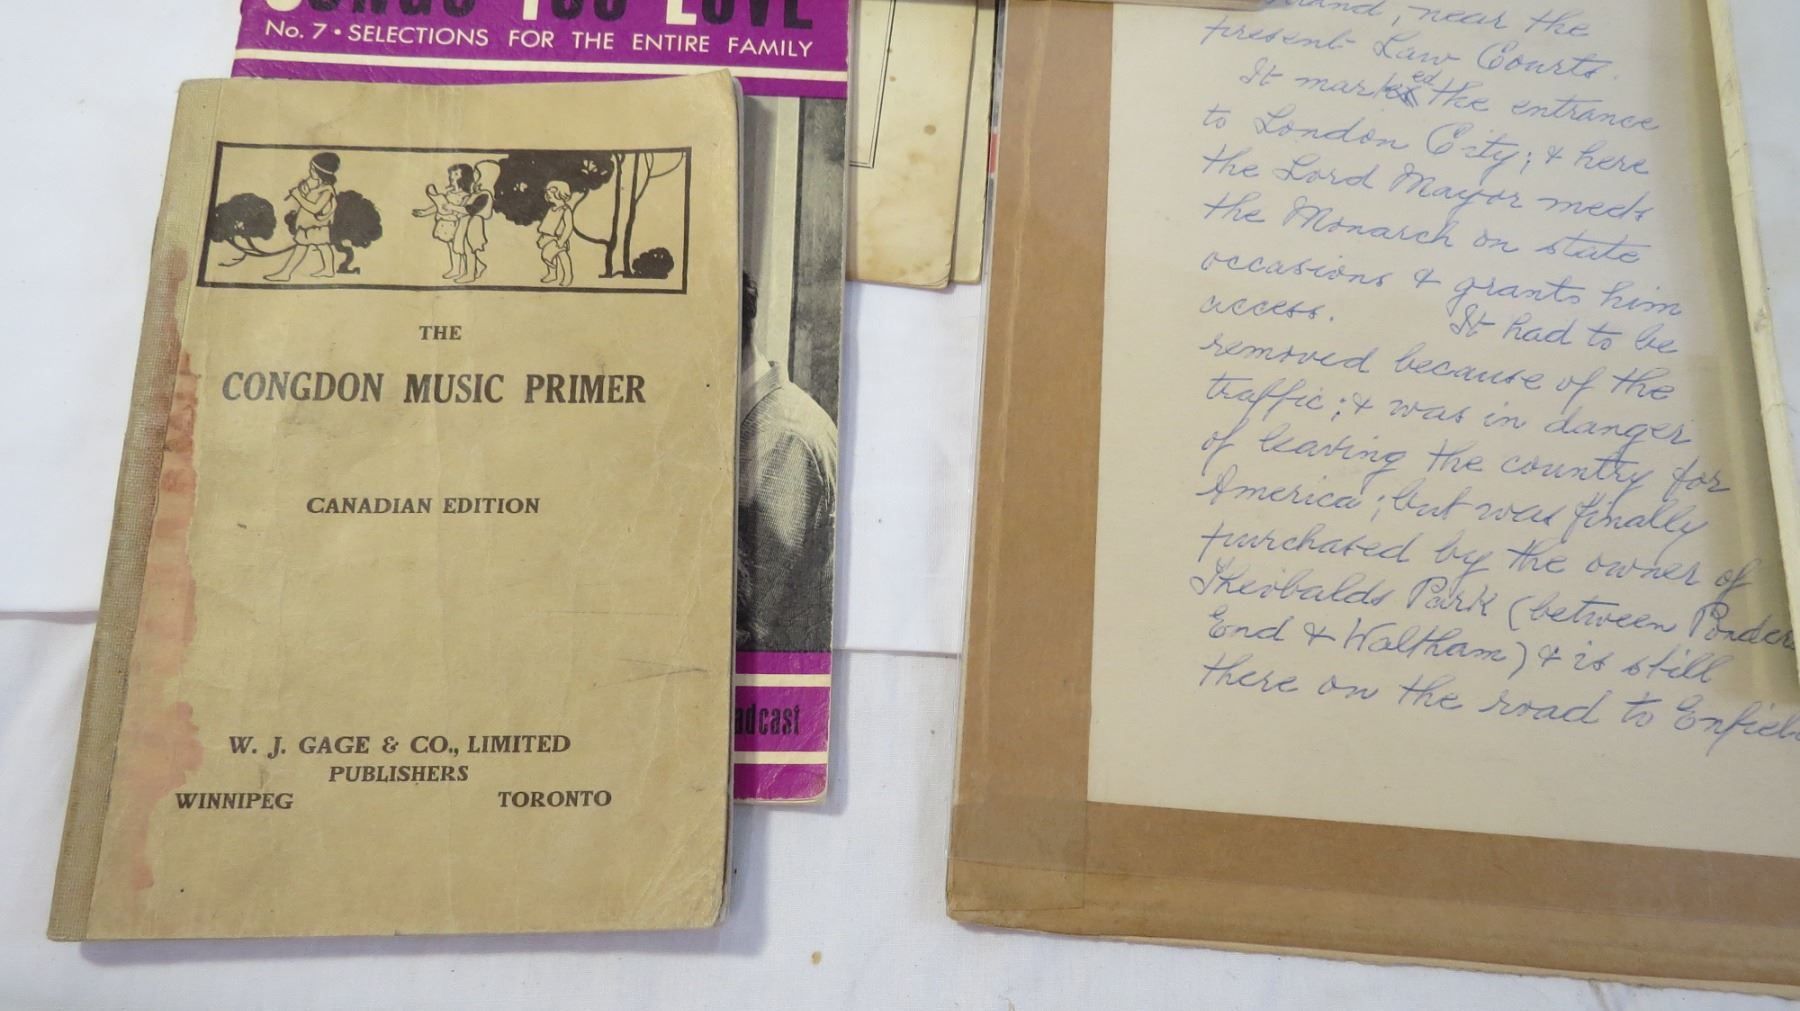 SONGS YOU LOVE
No. 7 • SELECTIONS FOR THE ENTIRE FAMILY
adcast
THE
CONGDON MUSIC PRIMER
CANADIAN EDITION
W. J. GAGE & CO., LIMITED
PUBLISHERS
WINNIPEG TORONTO
near the
present Law Courts.
It marked the entrance
to London City; & here
the Lord Mayor meets
the Monarch on state
occasions & grants him
access. It had to be
removed because of the
traffic; & was in danger
of leaving the country for
America; but was finally
purchased by the owner of
Theobalds Park (between Ponders
End & Waltham) & is still
there on the road to Enfield